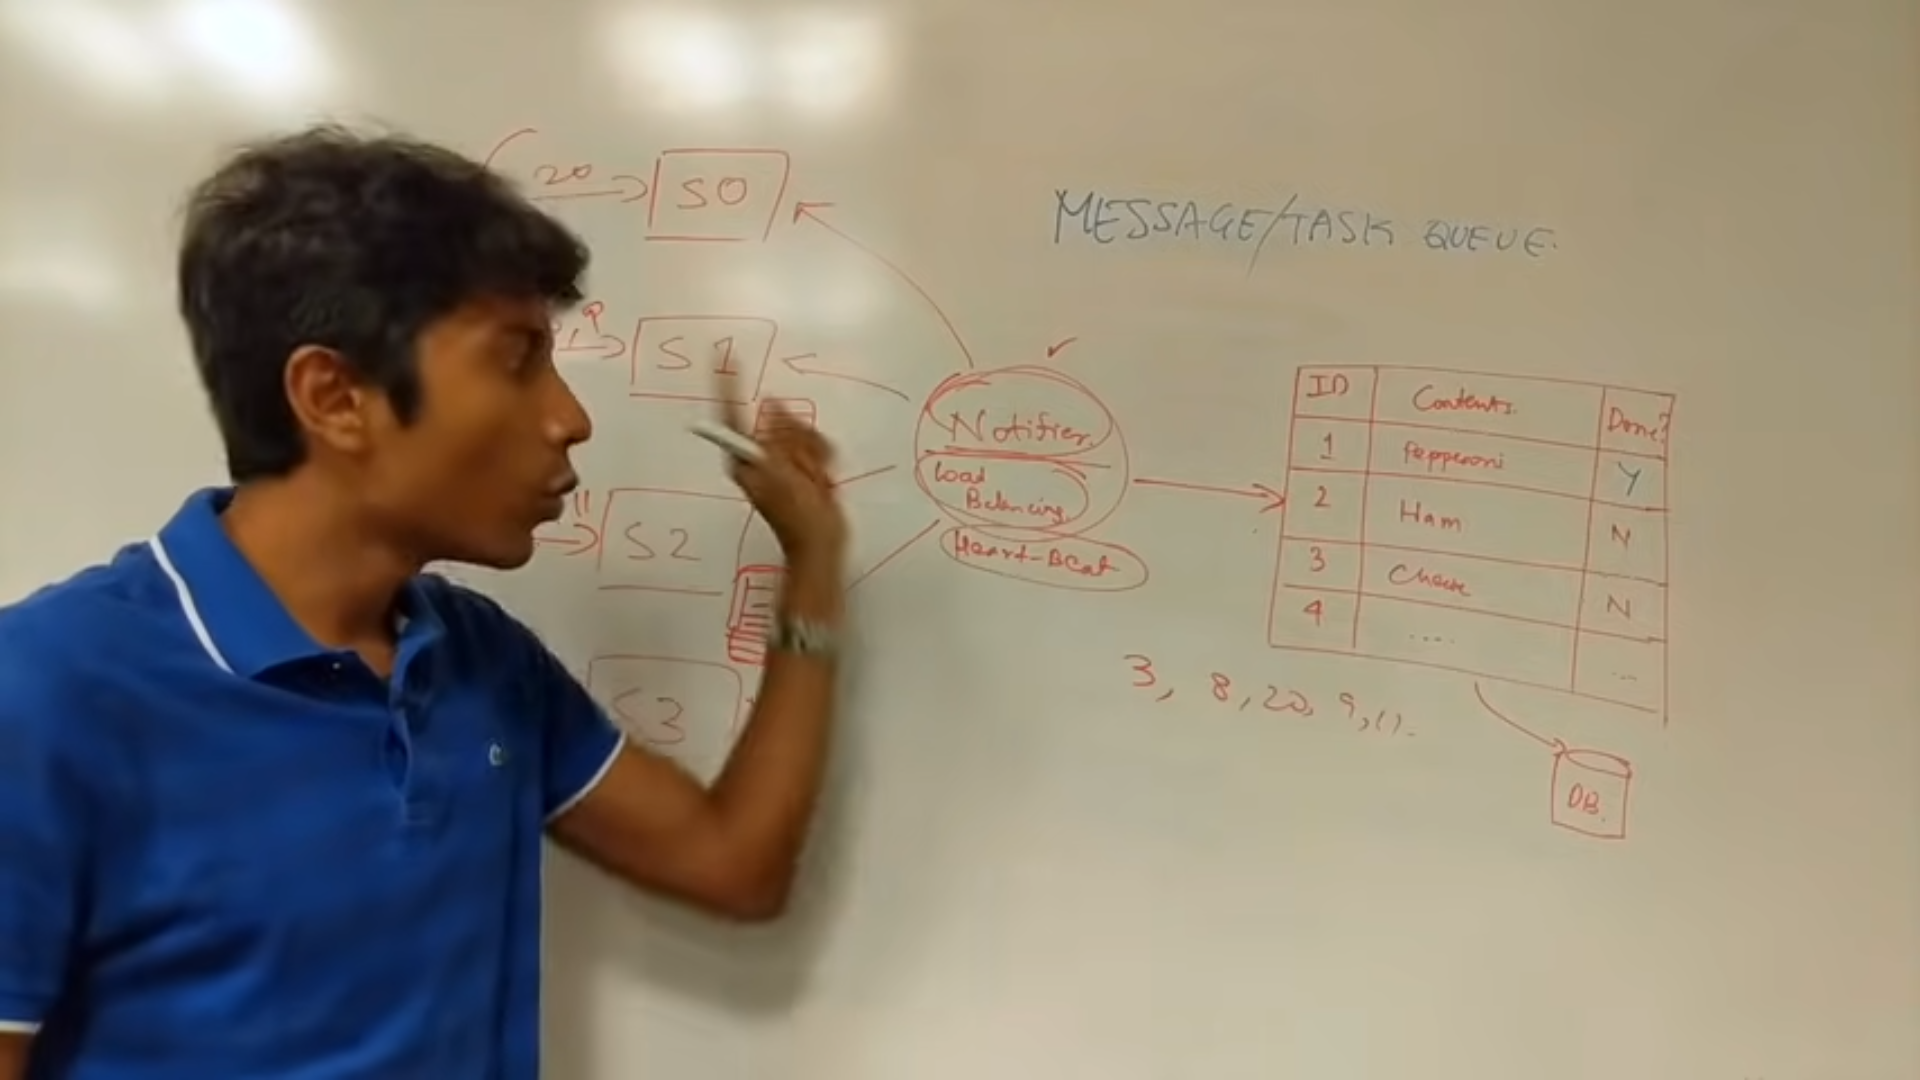 20
S0
MESSAGE/TASK QUEUE.
, 9
S1
Notifier.
Load
Balancing.
Heart-Beat
11
S2
S3
ID Contents. Done?
1 Pepperoni Y
2 Ham N
3 Cheese N
4 .... ...
3, 8, 20, 9, 11.
DB.